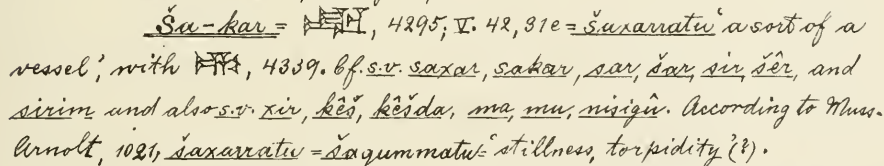 Ša-kar = , 4295; V. 42, 31e = šuxarratu 'a sort of a
vessel', with , 4339. Cf. s.v. saxar, sakar, sar, šar, sir, šêr, and
sirim and also s.v. xir, kêš, kêšda, ma, mu, nisigû. According to Muss-
Arnolt, 1021, šaxarratu = šaqummatu = 'stillness, torpidity' (?).